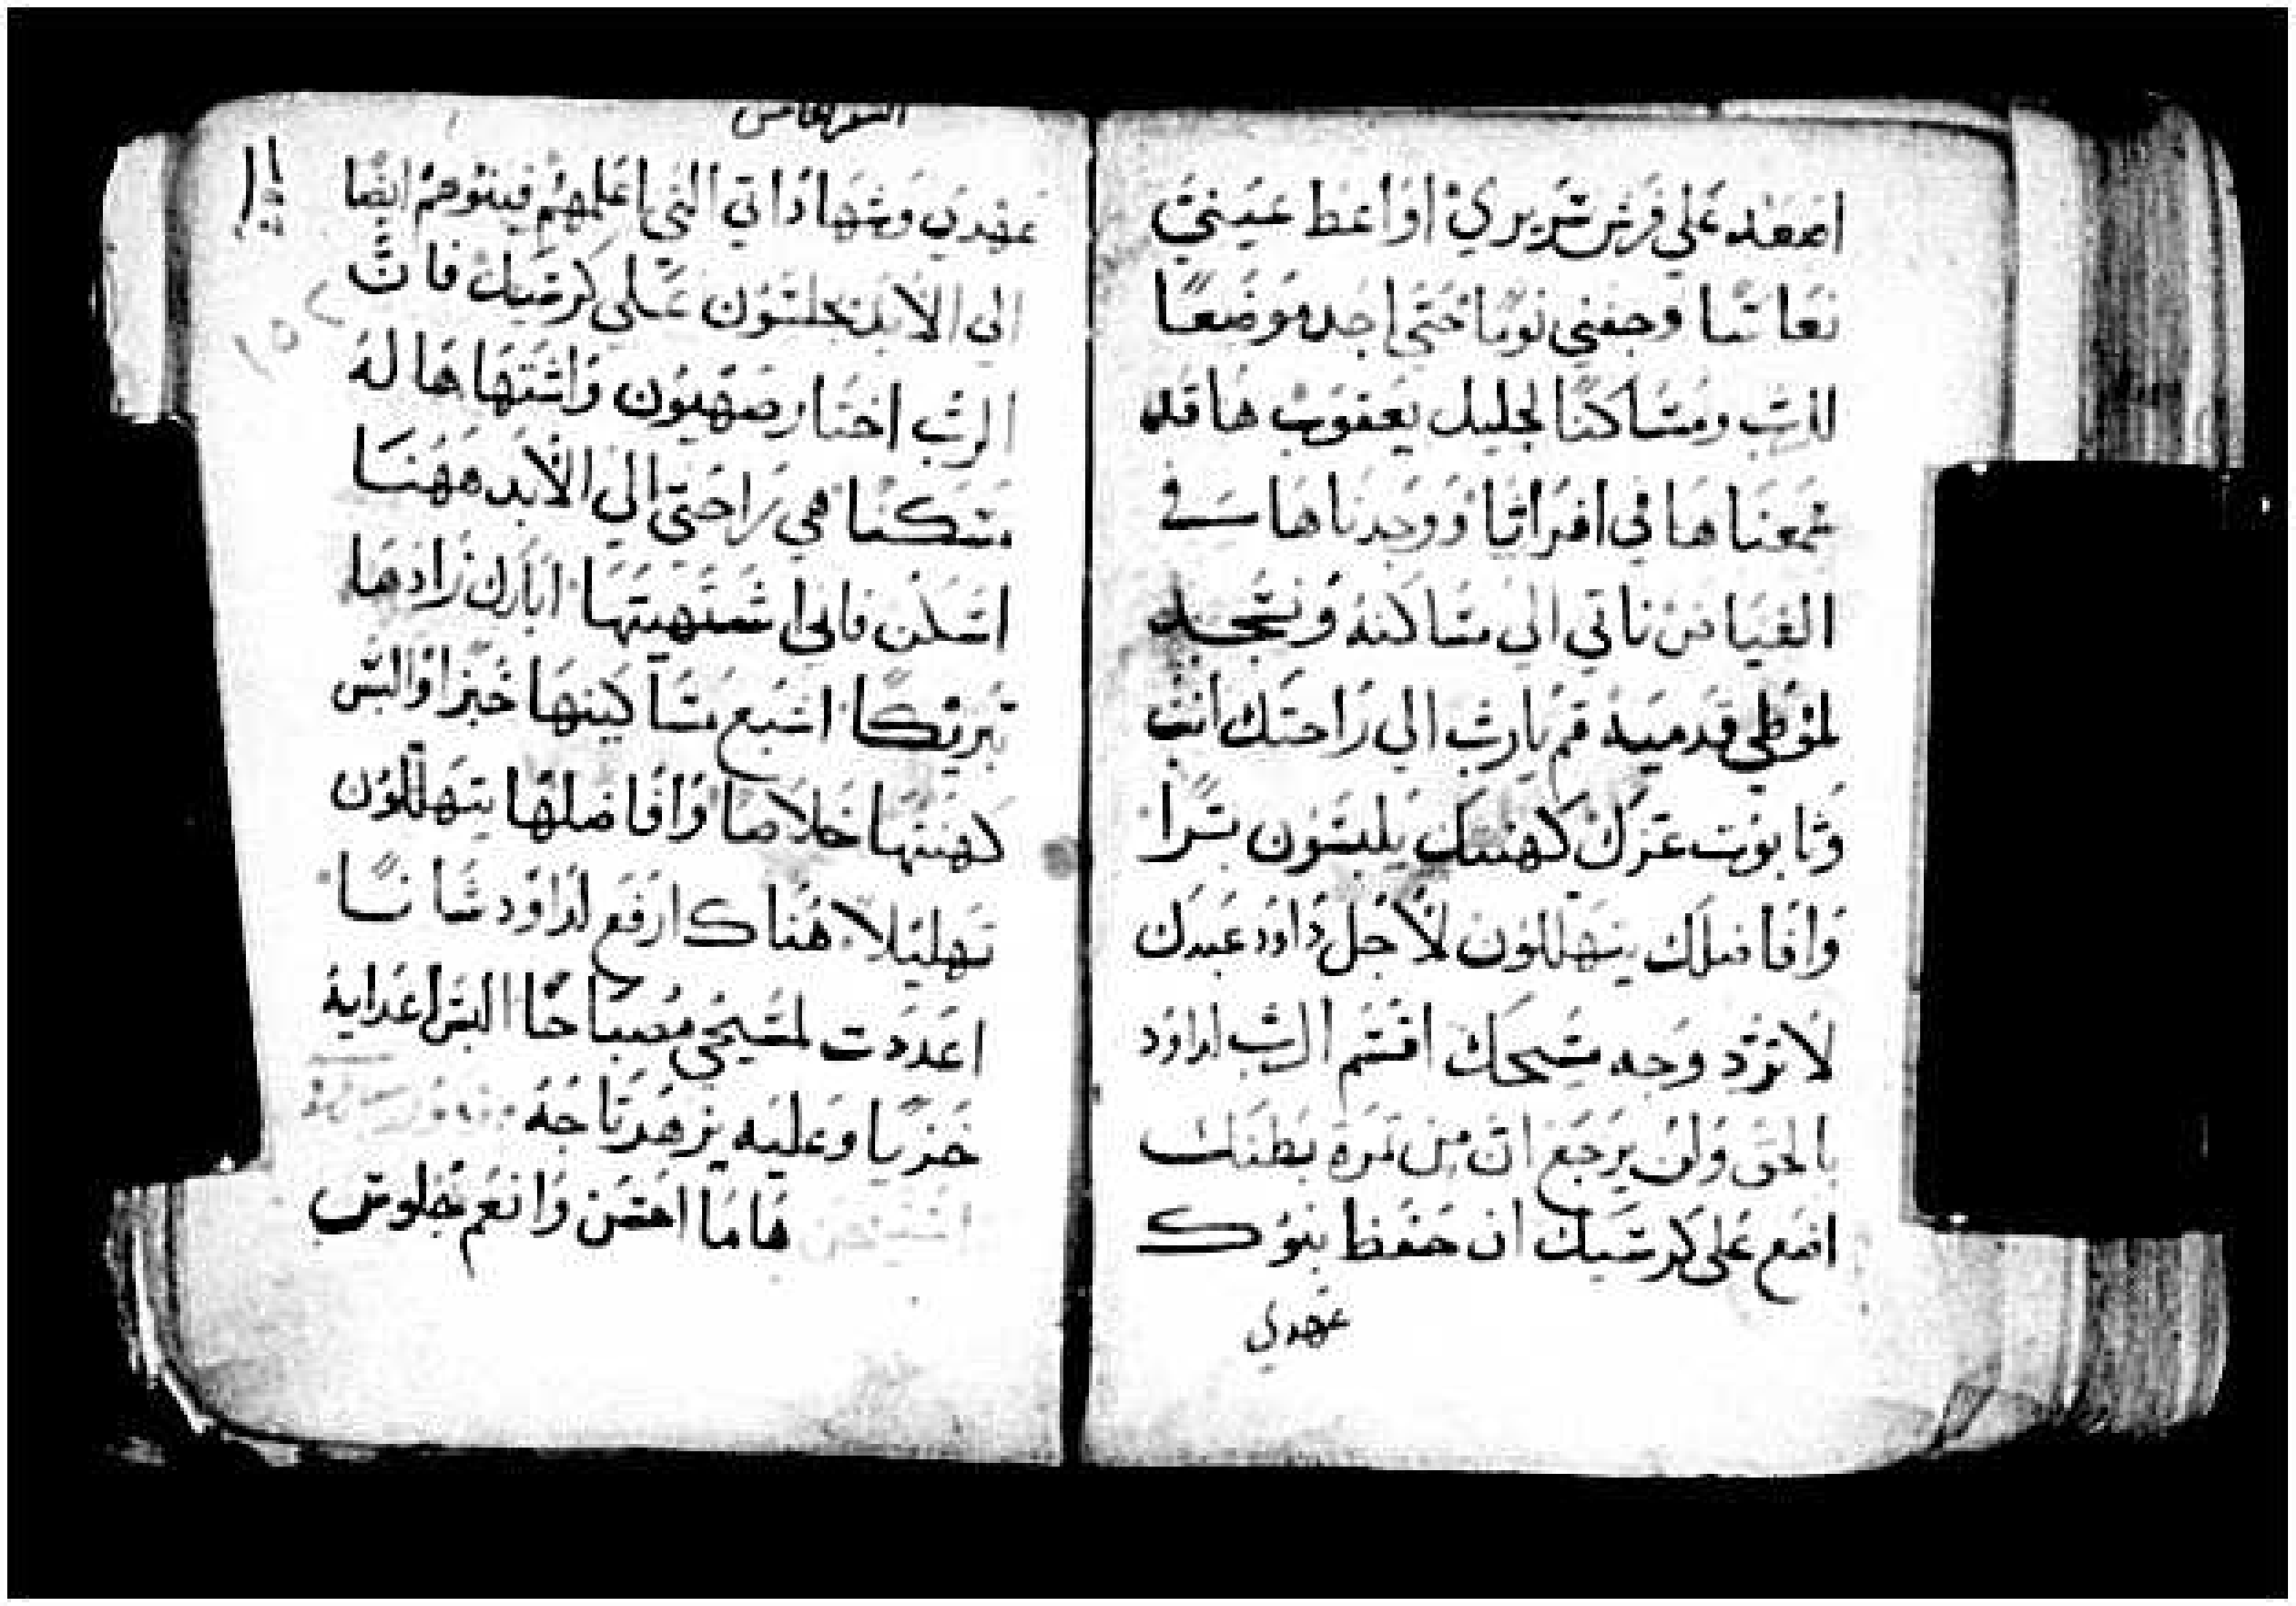 اصعد على فرش سريري او اعط عيني
نعاسا وجفني نوما حتى اجد موضعا
للرب ومساكنا لجليل يعقوب ها قد
سمعناها في افراثا ووجدناها في
الغياض ناتي الى مساكنه ونسجد
لموطي قدميه قم يارب الى راحتك انت
وتابوت عزك كهنتك يلبسون برا
وافاضلك يتهللون لاجل داود عبدك
لا ترد وجه مسيحك اقسم الرب لداود
بالحق ولن يرجع ان من ثمرة بطنك
اضع على كرسيك ان حفظ بنوك
عهدي
عهدي وشهاداتي التي اعلمهم فبنوهم ايضا
الى الابد يجلسون على كرسيك فان
الرب اختار صهيون واشتهاها له
مسكنا هي راحتي الى الابد ههنا
اسكن فاني اشتهيتها ابارك زادها
تبريكا اشبع مساكينها خبزا والبس
كهنتها خلاصا وافاضلها يتهللون
تهليلا هناك ارفع لداود شانا
اعددت لمسيحي مصباحا البس اعدايه
خزيا وعليه يزهر تاجه
ها ما احسن وانعم جلوس